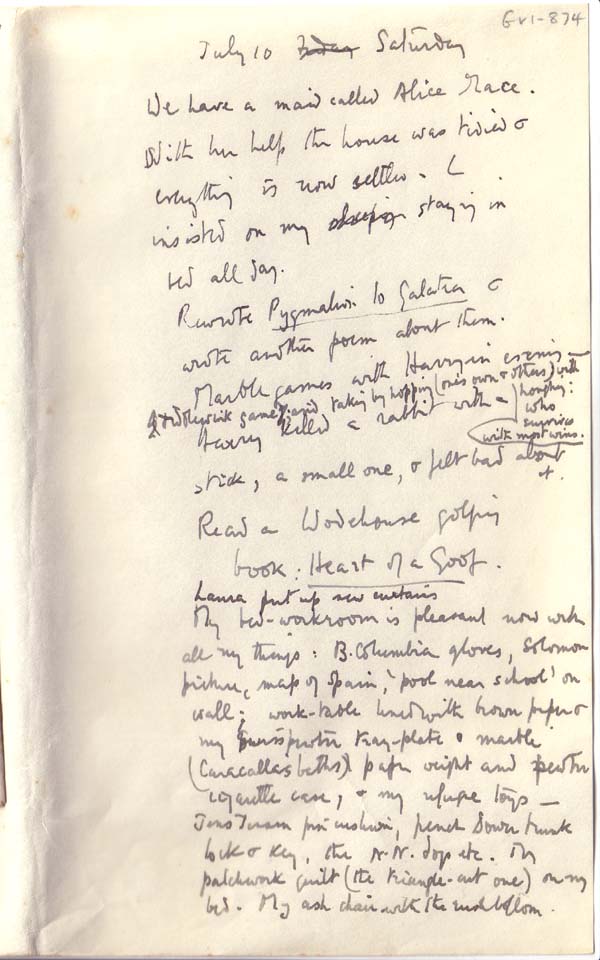 Gv1-874
July 10 Friday Saturday
We have a maid called Alice Mace.
With her help the house was tidied &
everything is now settled. L
insisted on my staying in
bed all day.
Rewrote Pygmalion to Galatea &
wrote another poem about them.
Marble games with Harry in evening —
A tiddlywink game and taking by hopping (one's own & others) with
who survives
with most wins.
Harry killed a rabbit with a
stick, a small one, & felt bad about
it.
Read a Wodehouse golfing
book: Heart of a Goof.
Laura put up new curtains
My bed-workroom is pleasant now with
all my things: B. Columbia gloves, Solomon
picture, map of Spain, 'pool near school' on
wall; work-table lined with brown paper &
my Swiss pewter tray-plate & marble
(Caracalla's baths) paper weight and pewter
cigarette case, & my refuge toys —
pin cushion, French Dower trunk
lock & key, the N.N. dop etc. My
patchwork quilt (the triangle-cut one) on my
bed. My ash chair with the rush bottom.